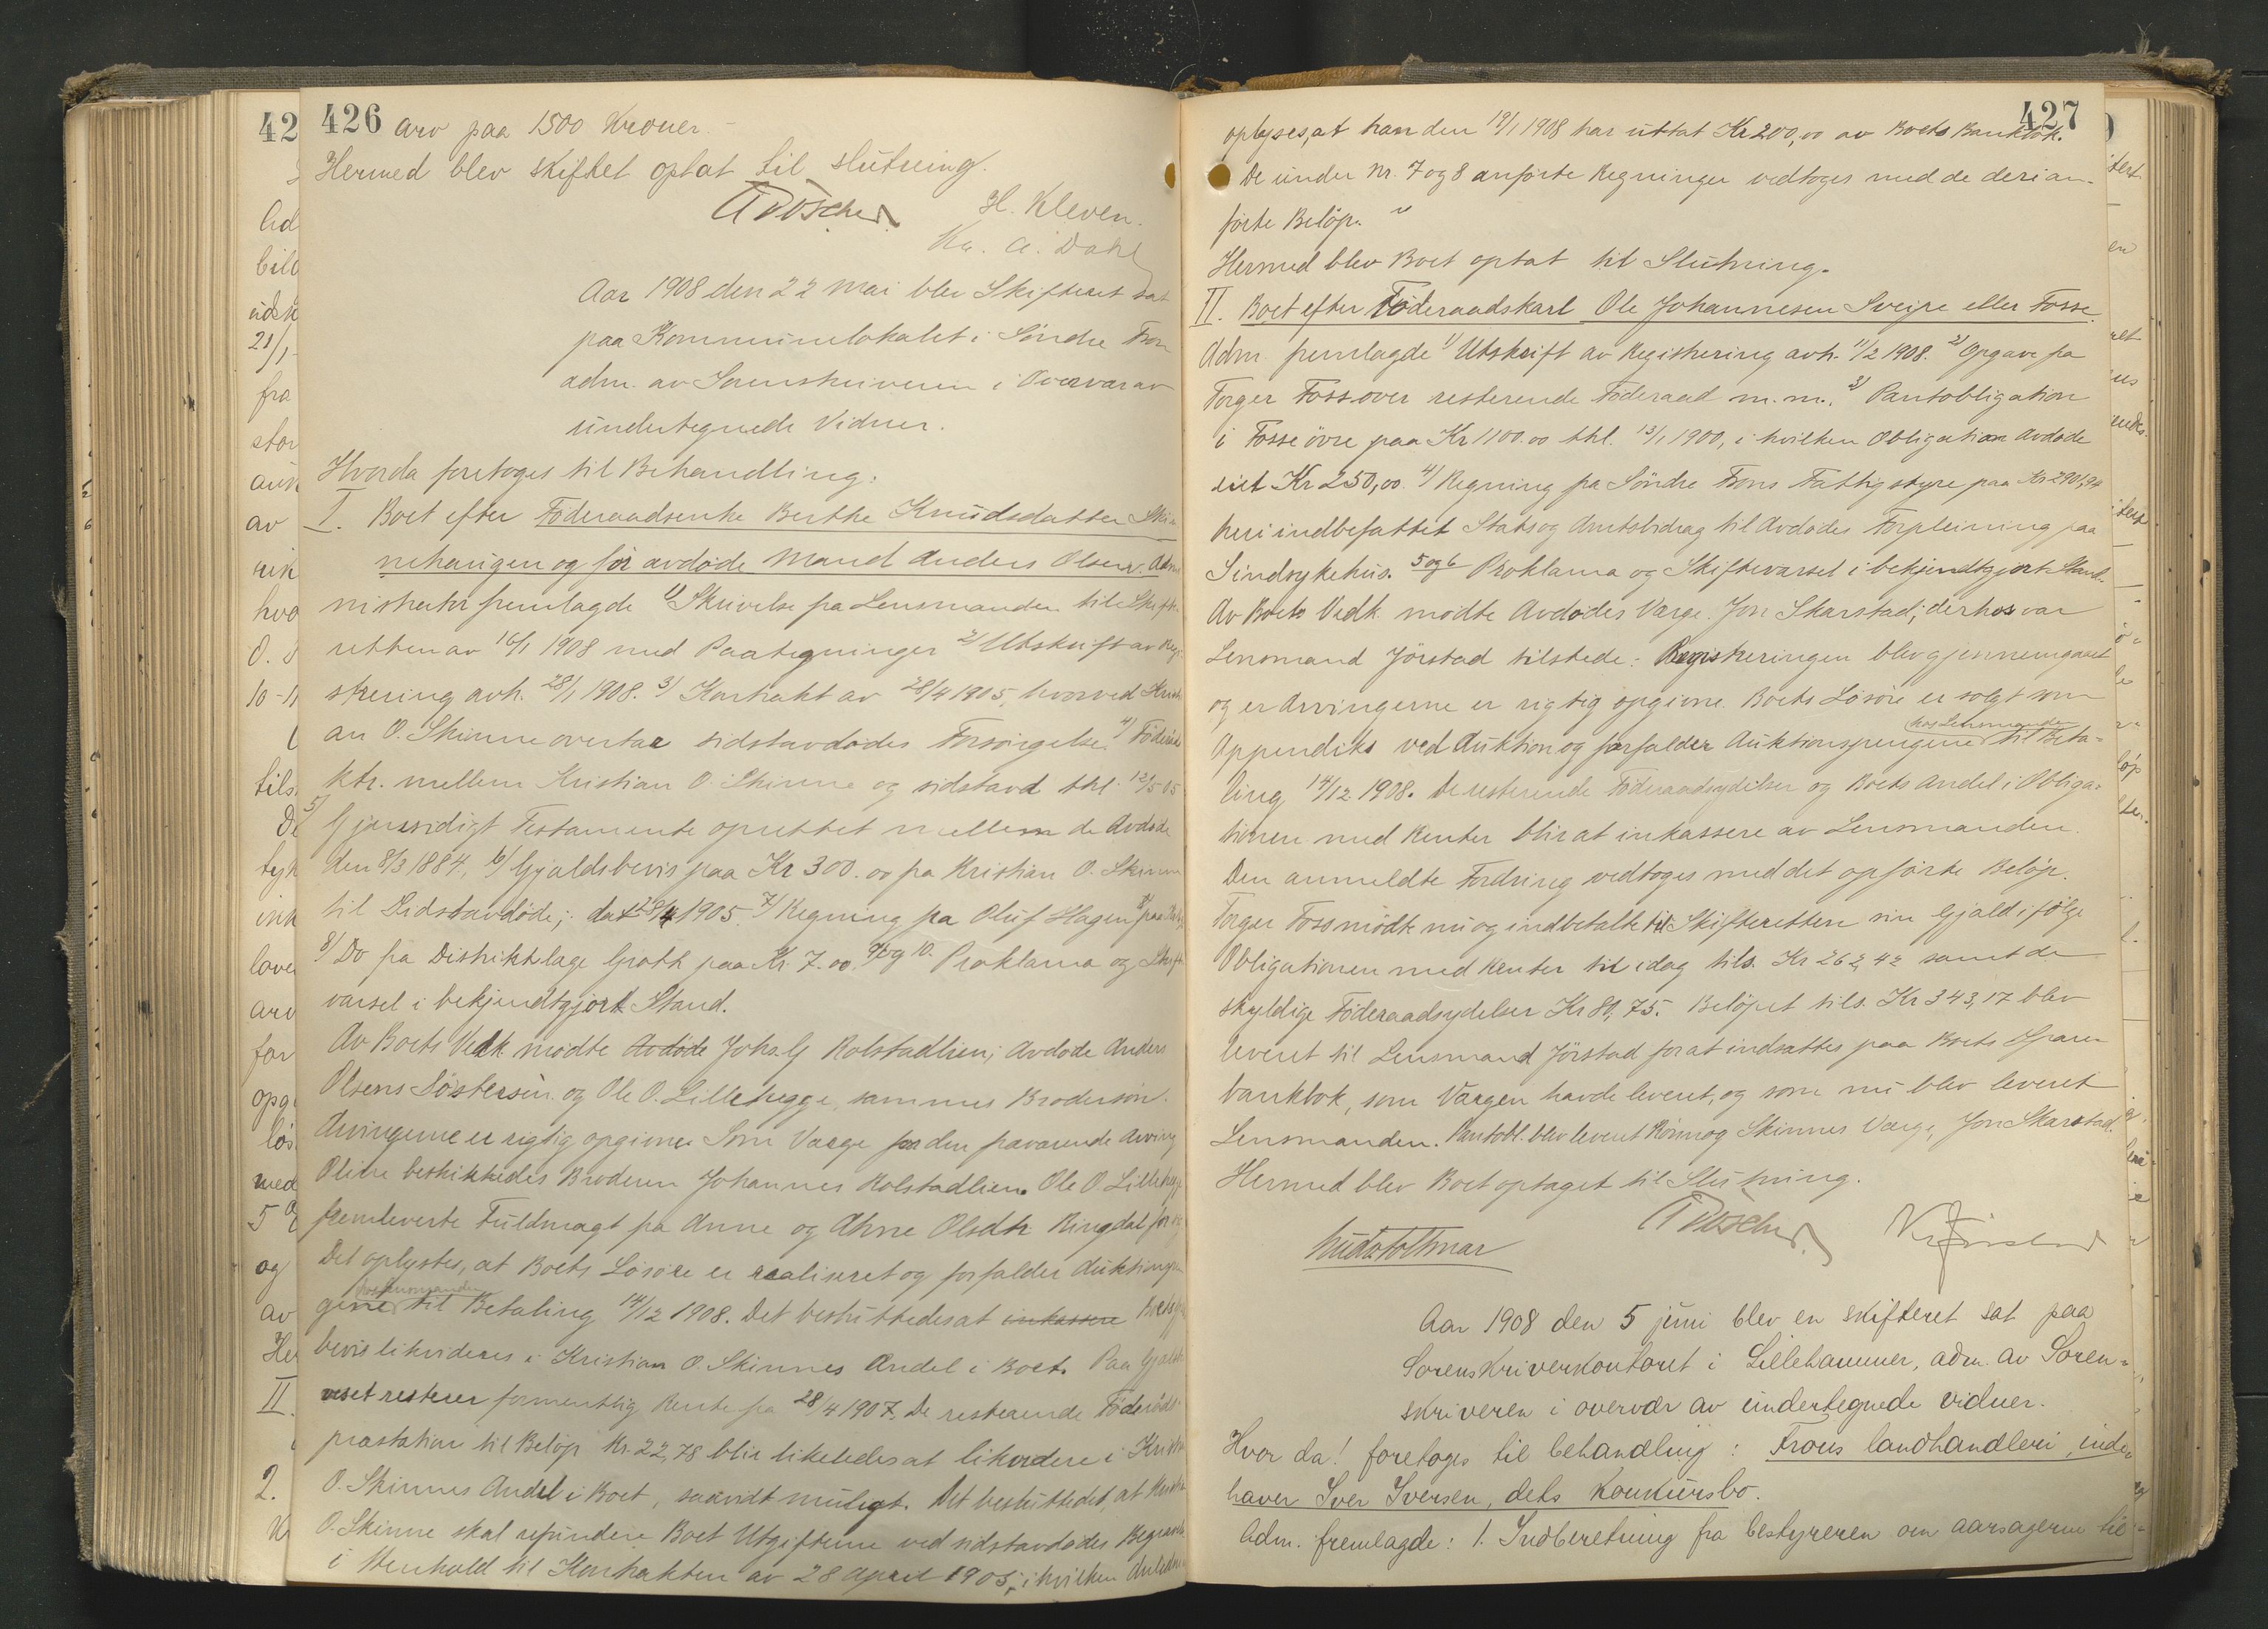 426
arv paa 1500 Kroner.-
Hermed blev skiftet optat til slutning.
H. Kleven.
Kr. A. Dahl
Aar 1908 den 22 Mai blev Skifteret sat
paa Kommunelokalet i Söndre Fron
adm. av Sorenskriveren i Overvær av
undertegnede Vidner.
Hvorda foretoges til Behandling:
I. Boet efter Föderaadsenke Berthe Knudsdatter Skin
nehaugen og för avdöde Mand Anders Olsen. Admi
nistrator fremlagde 1) Skrivelse fra Lensmanden til Skifte
retten av 16/1 1908 med Paategninger 2/ Utskrift av Reg
strering avh. 28/1 1908. 3/ Kontrakt av 28/4 1905, hvorved Kristi
an O. Skinne overtar sidstavdödes Forsörgelse. 4/ Föderaads
ktr. mellem Kristian O. Skinne og sidstavd. thl. 12/5 05
5/ Gjensidigt Testamente oprettet mellem de Avdöde
den 8/3 1884, 6/ Gjældsbevis paa Kr 300.00 fra Kristian O. Skinne
til Sidstavdöde, dat 28/4 1905. 7/ Regning fra Oluf Hagen paa
8/ Do fra Distriktslæge Groth paa Kr. 7.00. 9 og 10. Proklama og Skifte
varsel i bekjendtgjort Stand.
Av Boets Vedk. mödte Avdöde Johs. G Rolstadlien, Avdöde Anders
Olsens Söstersön og Ole O. Lillehegge, sammes Brodersön.
Arvingerne er rigtig opgivne. Som Værge for den fraværende Arving
Oline beskikkedes Broderen Johannes Rolstadlien. Ole O. Lillehegge
fremleverte Fuldmagt fra Anne og Ahne Olsdtr Ringdal for
Det oplystes, at Boets Lösöre er realiseret og forfalder Auktionspen
gene hos Lensmanden til Betaling 14/12 1908. Det besluttedes at inkassere Boets
bevis likvideres i Kristian O. Skinnes Andel i Boet. Paa Gjælds
veset resterer formentlig Rente fra 28/4 1907. De resterende Föderaads
præstation til Belöp Kr. 22,78 blir likeledes at likvidere i Kristian
O. Skinnes Andel i Boet, saavidt muligt. Det besluttedes, at Kristian
O. Skinne skal refundere Boet Utgifterne ved sidstavdödes Begravelse
i Henhold til Kontrakten av 28 April 1905, i hvilken Anledning
427
oplyses, at han den 19/1 1908 har uttat Kr 200,00 av Boets Bankbok.
De under Nr. 7 og 8 anförte Regninger vedtoges med de deri an-
förte Belöp.
Hermed blev Boet optat til Slutning.
II. Boet efter Föderaadskarl Ole Johannesen Sveipe eller Fosse.
Adm. fremlagde 1) Utskrift av Registrering avh. 11/2 1908. 2) Opgave fra
Torger Foss over resterende Föderaad m.m., 3) Pantobligation
i Fosse övre paa Kr 1100.00 thl. 13/1 1900, i hvilken Obligation Avdöde
eiet Kr 250,00. 4/ Regning fra Söndre Frons Fattigstyre paa Kr 2901,94
heri indbefattet Stats og Amtsbidrag til Avdödes Forpleining paa
Sindsykehus. 5 og 6 Proklama og Skiftevarsel i bekjendtgjort Stand.
Av Boets Vedk. mödte Avdödes Værge Jon Skarstad; derhos var
Lensmand Jörstad tilstede. Registreringen blev gjennemgaaet
og er Arvingerne er rigtig opgivne. Boets Lösöre er solgt som
Appendiks ved Auktion og forfalder Auktionspengene hos Lensmanden til Beta-
ling 14/12 1908. De resterende Föderaadsydelser og Boets Andel i Obliga-
tionen med Renter blir at inkassere av Lensmanden.
Den anmeldte Fordring vedtoges med det opförte Belöp.
Torger Foss mödte nu og indbetalte til Skifteretten sin Gjæld ifölge
Obligationen med Renter til idag tils. Kr 262,42 samt de
skyldige Föderaadsydelser Kr 80,75. Belöpet tils. Kr 343,17 blev
leveret til Lensmand Jörstad for at indsættes paa Boets Spare
bankbok, som Værgen havde leveret, og som nu blev leveret
Lensmanden. Pantobl. blev leveret Rönnog Skinnes Værge, Jon Skarstad.
Hermed blev Boet optaget til Slutning.
Aar 1908 den 5 juni blev en skifteret sat paa
Sorenskriverkontoret i Lillehammer, adm. av Soren-
skriveren i overvær av undertegnede vidner.
Hvor da! foretoges til behandling: Frons landhandleri, inde-
haver Iver Iversen, dets konkursbo.
Adm. fremlagde: 1. Indberetning fra bestyreren om aarsagerne til